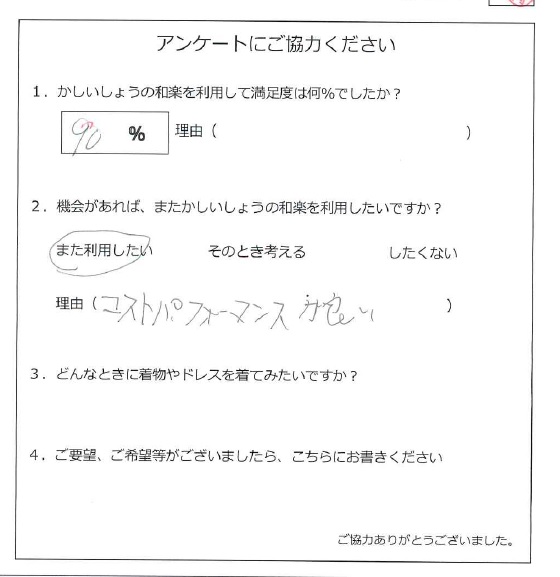 アンケートにご協力ください
1．かしいしょうの和楽を利用して満足度は何%でしたか？
90 % 理由（ ）
2．機会があれば、またかしいしょうの和楽を利用したいですか？
また利用したい そのとき考える したくない
理由（コストパフォーマンスが良い ）
3．どんなときに着物やドレスを着てみたいですか？
4．ご要望、ご希望等がございましたら、こちらにお書きください
ご協力ありがとうございました。